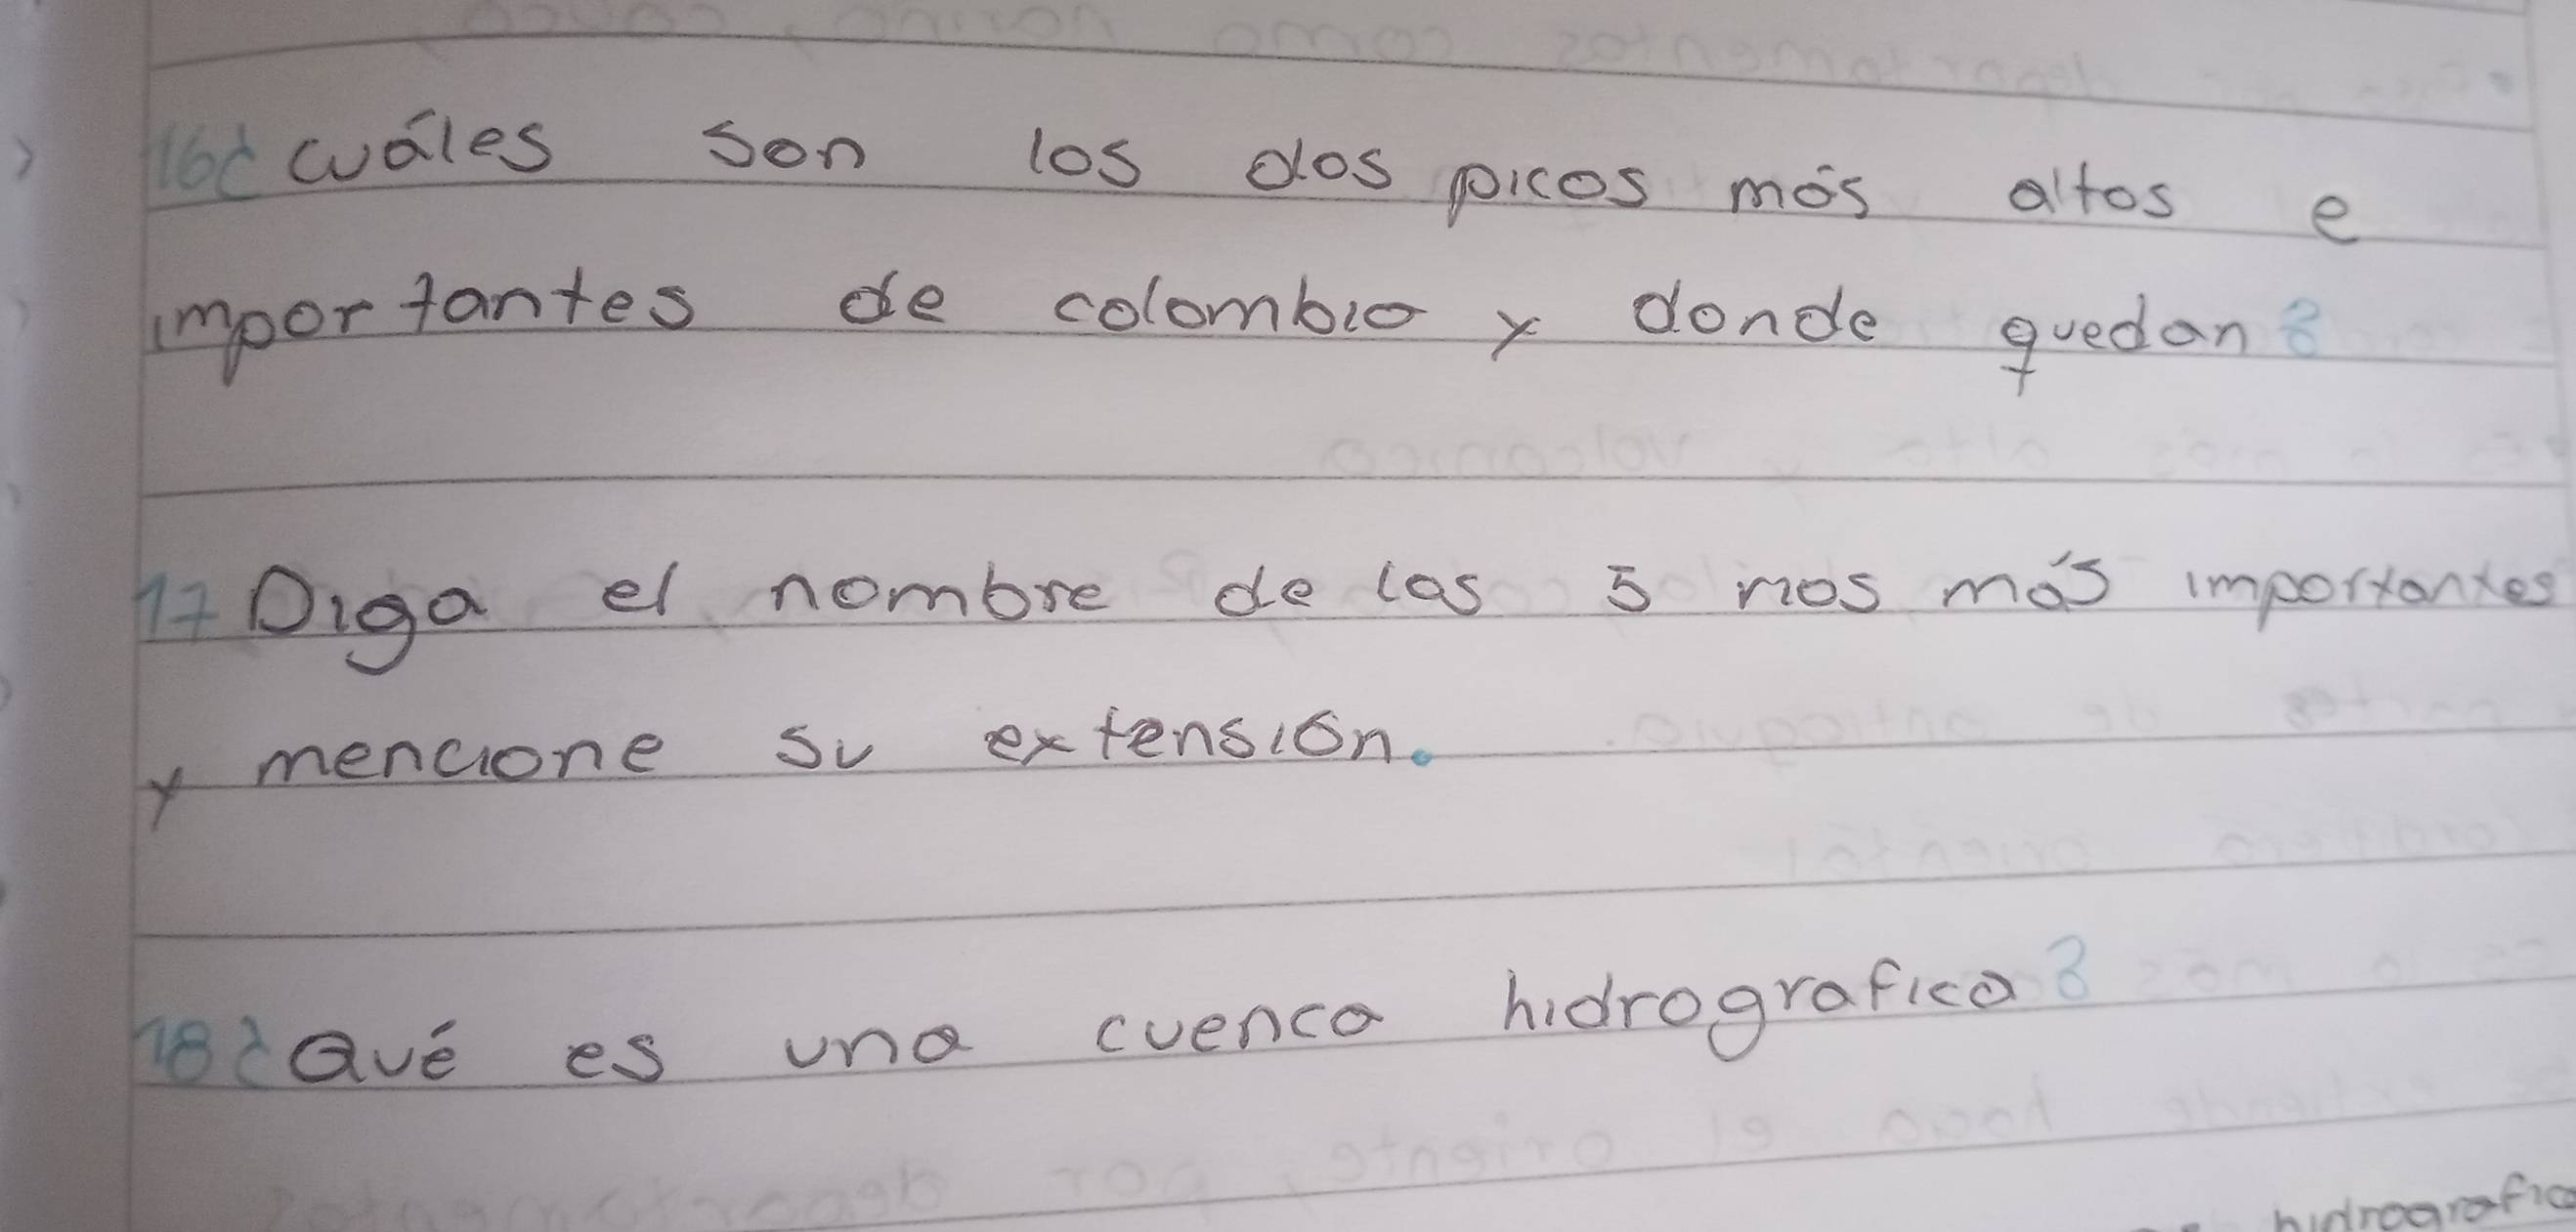 16¿ Cuáles son los dos picos más altos e
importantes de colombia y donde quedan?
17 Diga el nombre de los 5 rios más importantes
y mencione su extensión.
18¿ Qué es una cuenca hidrografica?
hidrografica